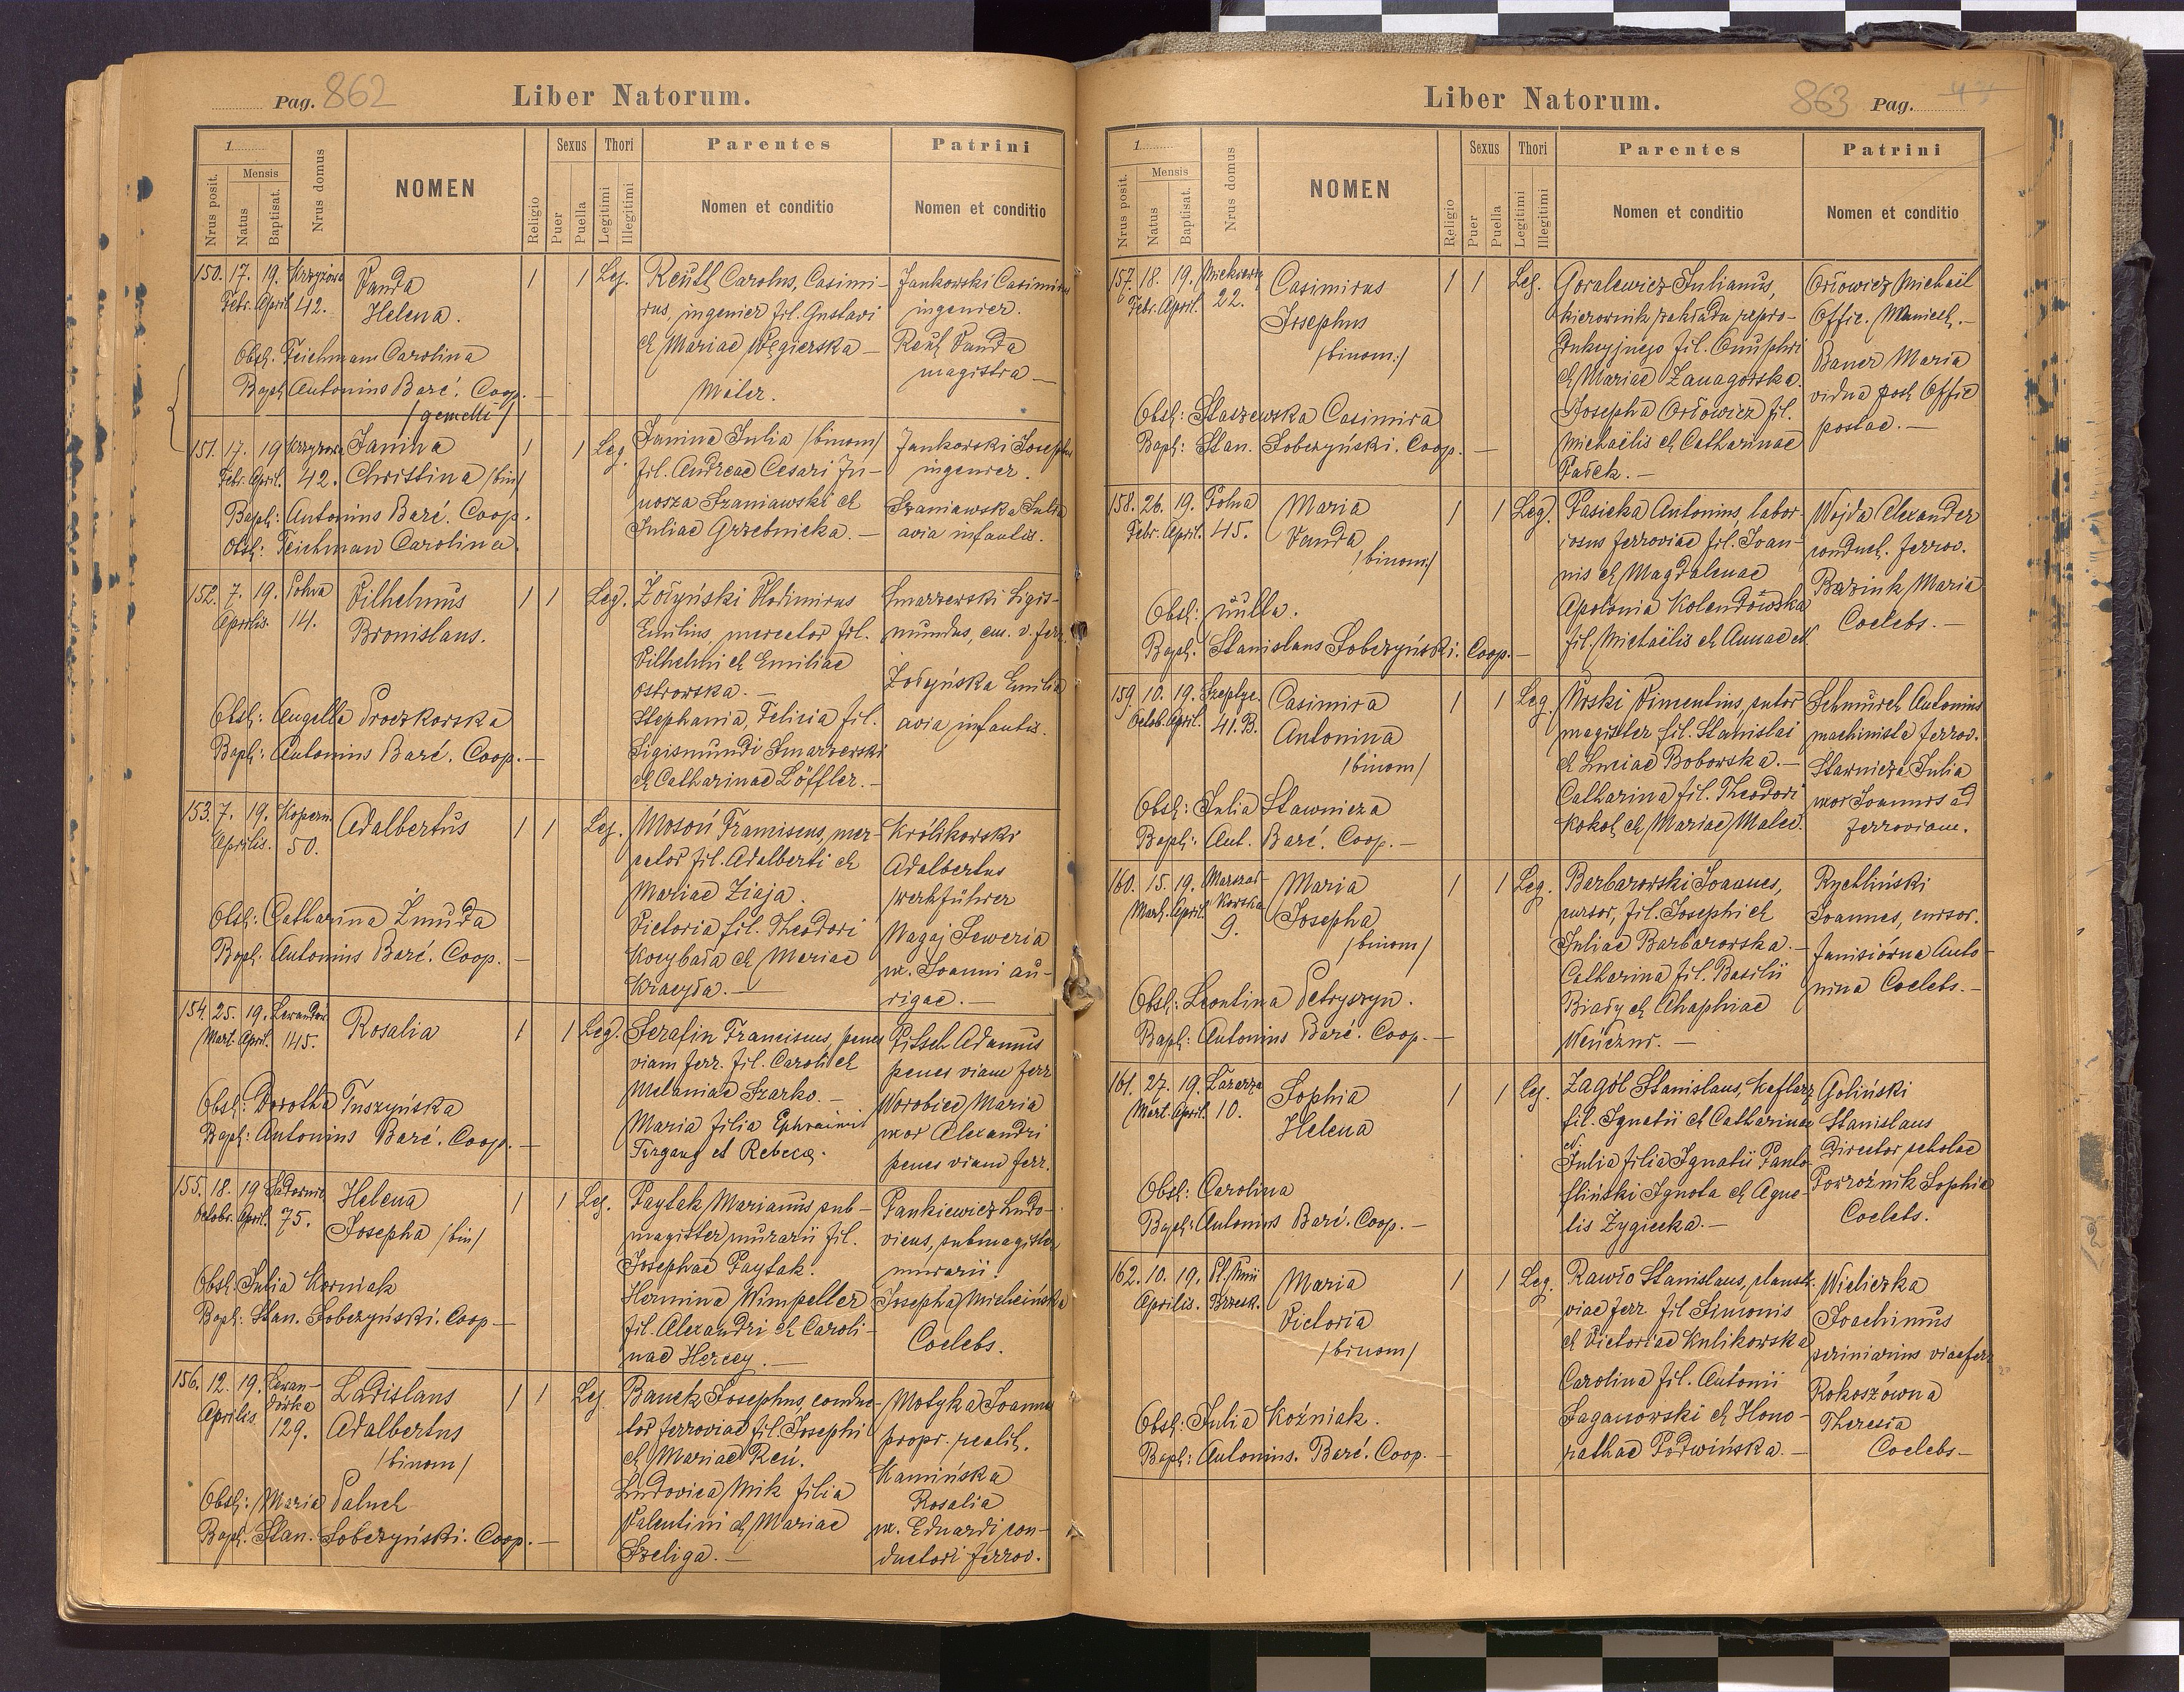 Pag. 862
Liber Natorum.
1
Mensis
Nrus posit.
Natus
Baptisat.
Nrus domus
NOMEN
Religio
Sexus
Puer
Puella
Thori
Legitimi
Illegitimi
Parentes
Nomen et conditio
Patrini
Nomen et conditio
150. 17. 19. Krzyżowa Vanda 1 1 Leg. Reutt Carolus, Casimi- Jankowski Casimirus
Febr. April 42. Helena. rus, ingenier fil. Gustavi ingenier.
et Mariae Węgierska — Reutt Vanda
Obst. Teichmann Carolina magistra —
Bapt. Antonius Baré. Coop. — Mater.
/gemelli/
151. 17. 19 Krzyżowa Janina 1 1 Leg. Janina Julia /binom/ Jankowski Joseph
Febr. April. 42. Christina /bin/ fil. Andreae Cesari Ju- ingenier.
Bapt: Antonius Baré. Coop. nosza Szaniawski et Szaniawska Julia
Obst: Teichman Carolina. Juliae Grzebnicka. — avia infantis.
152. 7. 19. Polna Vilhelmus 1 1 Leg. Żołyński Vlodimirus Smarzewski Sigis-
Aprilis. 14. Bronislaus. Emilius, mercator fil. mundus, em. v. ferr.
Vilhelmi et Emiliae
Ostrowska. — Żołyńska Emilia
Obst: Angella Proczkorska Stephania, Felicia fil. avia infantis.
Bapt: Antonius Baré. Coop. — Sigismundi Smarzewski
et Catharinae Löffler. —
153. 7. 19. Kopern. Adalbertus 1 1 Leg. Mosoń Franciscus, mer- Królikowski
Aprilis. 50. cator fil. Adalberti et Adalbertus
Mariae Ziaja. werkführer
Obst: Catharina Żmuda Victoria fil. Theodori Magaj Severia
Bapt: Antonius Baré. Coop. — Korybała et Mariae ux. Joanni au-
Kracyła. — rigae. —
154. 25. 19. Lewandów Rosalia 1 1 Leg. Serafin Franciscus, penes Pitsch Adamus
Mart. April. 145. viam ferr. fil. Caroli et penes viam ferr
Melaniae Szarko. — Worobiec Maria
Obst: Dorothea Tuszyńska Maria filia Ephraimi uxor Alexandri
Bapt: Antonius Baré. Coop. — Tirgang et Rebeca. penes viam ferr.
155. 18. 19 Sadownic Helena 1 1 Leg. Paytak Marianus sub- Pankiewicz Ludo-
Octobr. April. 75. Josepha /bin/ magister murarii fil. vicus, submagister
Josephae Paytak. murarii.
Obst. Julia Korniak Hermina Wimpeller Josepha Micheińska
Bapt: Stan. Sobczyński. Coop — fil. Alexandri et Caroli- Coelebs.
nae Hercey. —
156. 12. 19. Lewan- Ladislaus 1 1 Leg. Banek Josephus, conduc- Motyka Joannes
Aprilis. dówka Adalbertus tor ferroviae fil. Josephi propr. realit.
129. /binom/ et Mariae Reń. Kamińska
Ludovica Mik filia Rosalia
Obst: Maria Paluch Valentini et Mariae ux. Eduardi con-
Bapt. Stan. Sobczyński. Coop. — Szeliga. — ductori ferrov.
Liber Natorum.
863 Pag. 47
1
Mensis
Nrus posit.
Natus
Baptisat.
Nrus domus
NOMEN
Religio
Sexus
Puer
Puella
Thori
Legitimi
Illegitimi
Parentes
Nomen et conditio
Patrini
Nomen et conditio
157. 18. 19. Mickiewicz Casimirus 1 1 Leg. Goralewicz Julianus, Orłowicz Michaël
Febr. April. 22. Josephus kierownik zakładu repro- Offic. Municip. —
/binom:/ dukcyjnego fil. Onuphri Bauer Maria
et Mariae Zanagorska. vidua post Offic
Obst: Staszewska Casimira Josepha Orłowicz fil. postae. —
Bapt: Stan. Sobczyński. Coop. — Michaëlis et Catharinae
Pasek. —
158. 26. 19. Polna Maria 1 1 Leg. Pasieka Antonius, labor- Wojda Alexander
Febr. April. 45. Vanda iosus ferroviae fil. Joan- conduct. ferrov.
/binom/ nis et Magdalenae Bazink Maria
Obst: nulla. Apolonia Kolendowska Coelebs. —
Bapt. Stanislaus Sobczyński. Coop. — fil. Michaëlis et Annae
159. 10. 19. Szeptyc. Casimira 1 1 Leg. Urski Vincentius, sutor Schmürch Antonius
Octob. April. 41.B. Antonina magister fil. Stanislai machinista ferrov.
/binom/ et Luciae Boborska. — Stawnicza Julia
Obst: Julia Stawnicza Catharina fil. Theodori uxor Joannis ad
Bapt: Ant. Baré. Coop. — Kokot et Mariae Malec. ferroviam.
160. 15. 19. Marszał- Maria 1 1 Leg. Barbarowski Joannes, Rychliński
Mart. April. kowska Josepha cursor, fil. Josephi et Joannes, cursor.
9. /binom/ Juliae Barbarowska. — Janisiówna Anto-
Catharina fil. Basilii nina Coelebs. —
Obst: Leontina Petryszyn. Biały et Ahaphiae
Bapt: Antonius Baré. Coop. — Wenczur. —
161. 27. 19. Łazarza Sophia 1 1 Leg. Zagól Stanislaus, Kaflarz Goliński
Mart. April. 10. Helena fil. Ignatii et Catharinae Stanislaus
et. Julia filia Ignatii Panto- Director scholae
Obst: Carolina fliński Ignota et Agne- Powroźnik Sophia
Bapt: Antonius Baré. Coop. — tis Zygiecka. — Coelebs.
162. 10. 19. Pl. Unii Maria 1 1 Leg. Rawło Stanislaus, claustr. Wieliczka
Aprilis. Brzesk. Victoria viae ferr fil Simonis Joachimus
/binom/ et Victoriae Kulikowska viae ferr
Carolina fil. Antonii Rokoszówna
Obst: Julia Koźniak. Łaganowski et Hono- Theresia
Bapt: Antonius. Baré. Coop. — rathae Podwińska. — Coelebs —